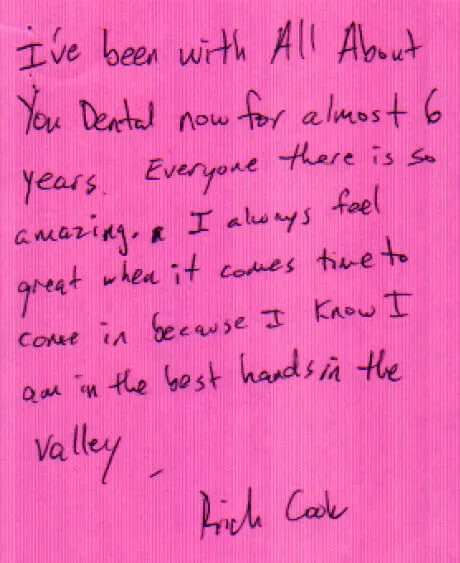 I've been with All About
You Dental now for almost 6
years. Everyone there is so
amazing. I always feel
great when it comes time to
come in because I know I
am in the best hands in the
Valley
Rich Cook